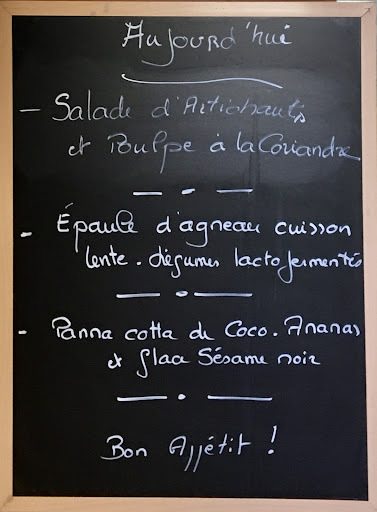 Aujourd'hui
- Salade d'Artichauts
et Poulpe à la Coriandre
- Épaule d'agneau cuisson
lente. légumes lactofermentés
- Panna cotta de Coco. Ananas
et glace Sésame noir
Bon Appétit !